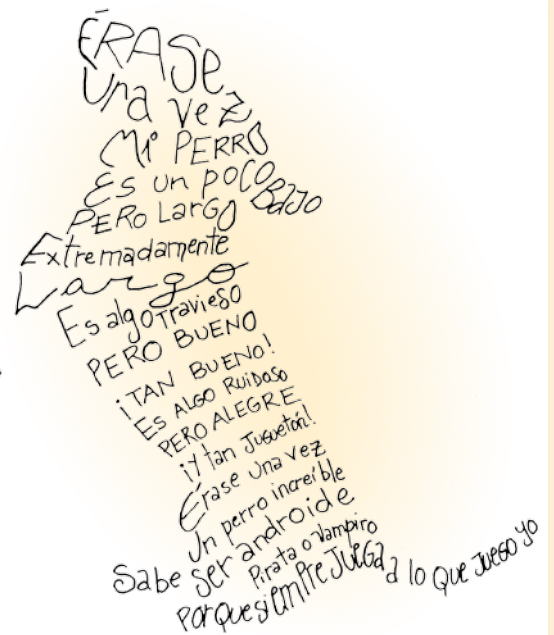 ÉRASE
Una vez
Mi PERRO
Es un poco BAJO
PERO LARGO
Extremadamente
Largo
Es algo travieso
PERO BUENO
¡TAN BUENO!
Es ALGO RUIDOSO
PERO ALEGRE
¡Y tan Juguetón!
Érase Una vez
Un perro increíble
Sabe ser androide
Pirata o Vampiro
Porque siempre Juega a lo que Juego yo